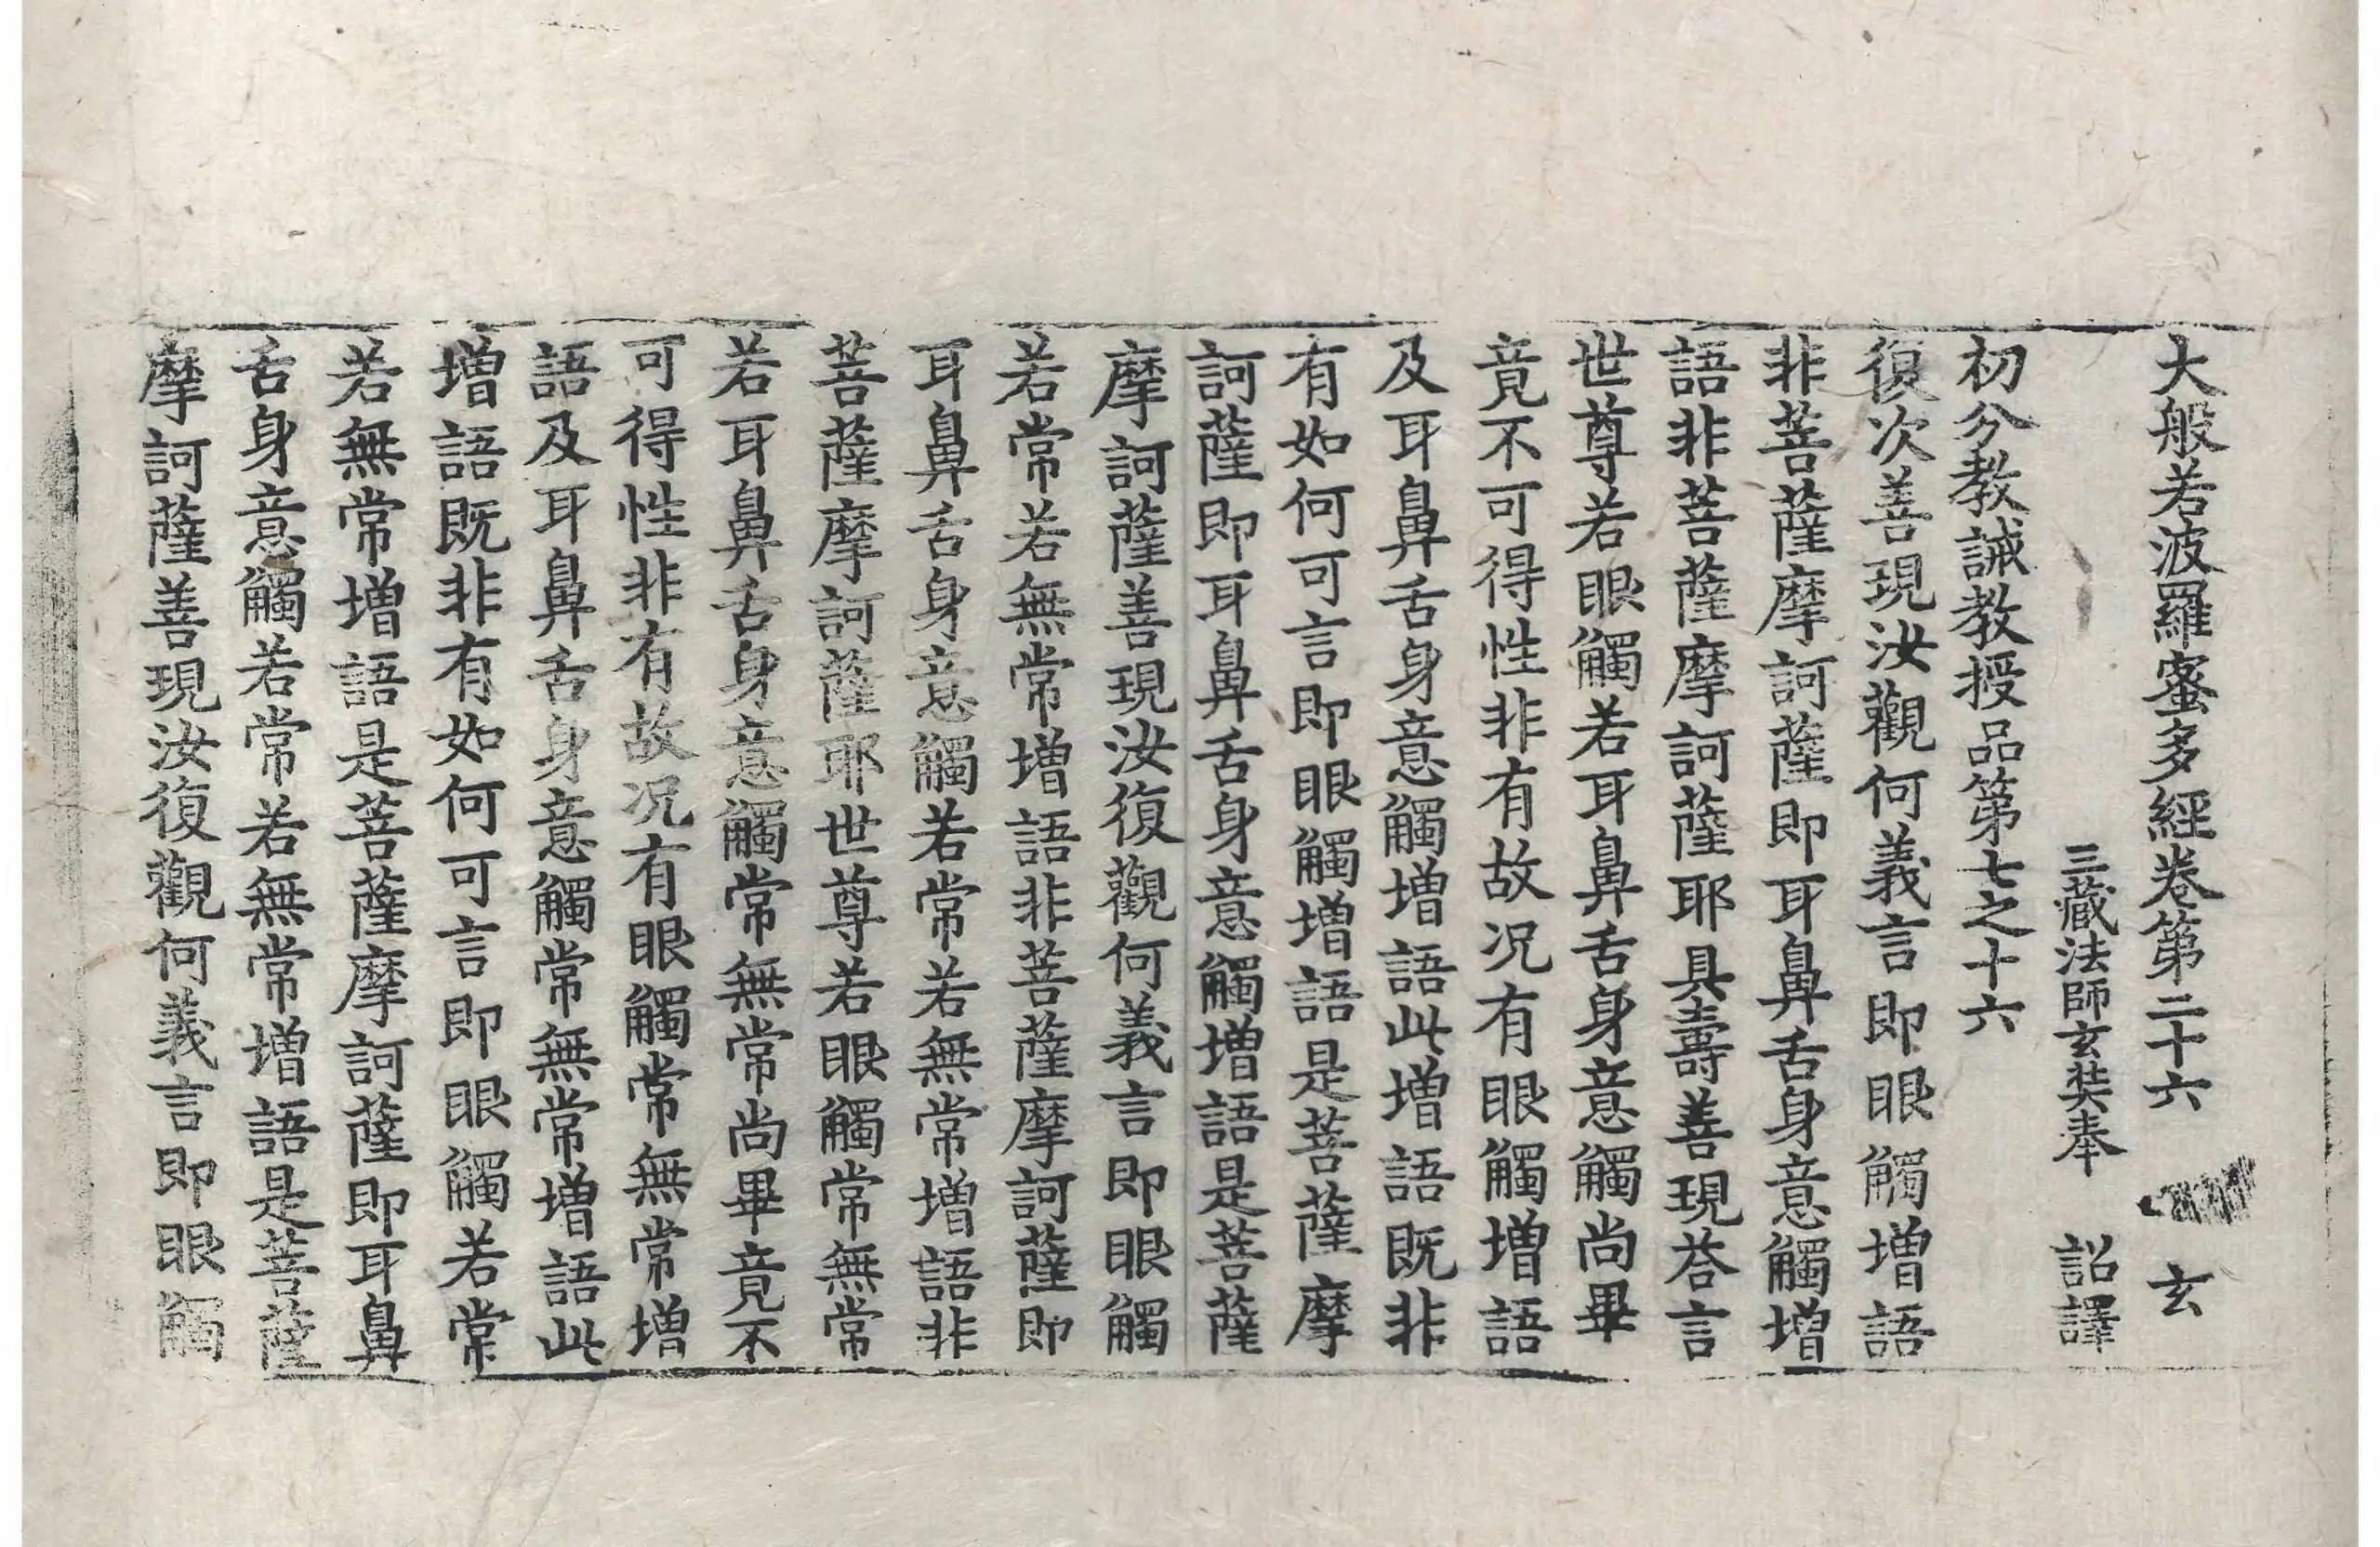 大般若波羅蜜多經卷第二十六 玄
三藏法師玄奘奉 詔譯
初分教誡教授品第七之十六
復次善現汝觀何義言即眼觸增語
非菩薩摩訶薩即耳鼻舌身意觸增
語非菩薩摩訶薩耶具壽善現荅言
世尊若眼觸若耳鼻舌身意觸尚畢
竟不可得性非有故况有眼觸增語
及耳鼻舌身意觸增語此增語既非
有如何可言即眼觸增語是菩薩摩
訶薩即耳鼻舌身意觸增語是菩薩
摩訶薩善現汝復觀何義言即眼觸
若常若無常增語非菩薩摩訶薩即
耳鼻舌身意觸若常若無常增語非
菩薩摩訶薩耶世尊若眼觸常無常
若耳鼻舌身意觸常無常尚畢竟不
可得性非有故况有眼觸常無常增
語及耳鼻舌身意觸常無常增語此
增語既非有如何可言即眼觸若常
若無常增語是菩薩摩訶薩即耳鼻
舌身意觸若常若無常增語是菩薩
摩訶薩善現汝復觀何義言即眼觸